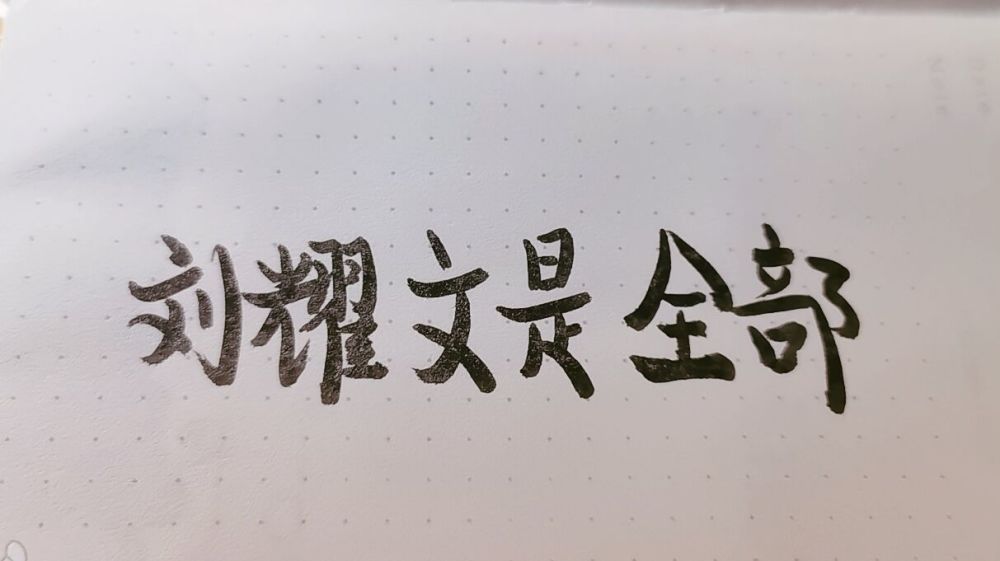 刘耀文是全部